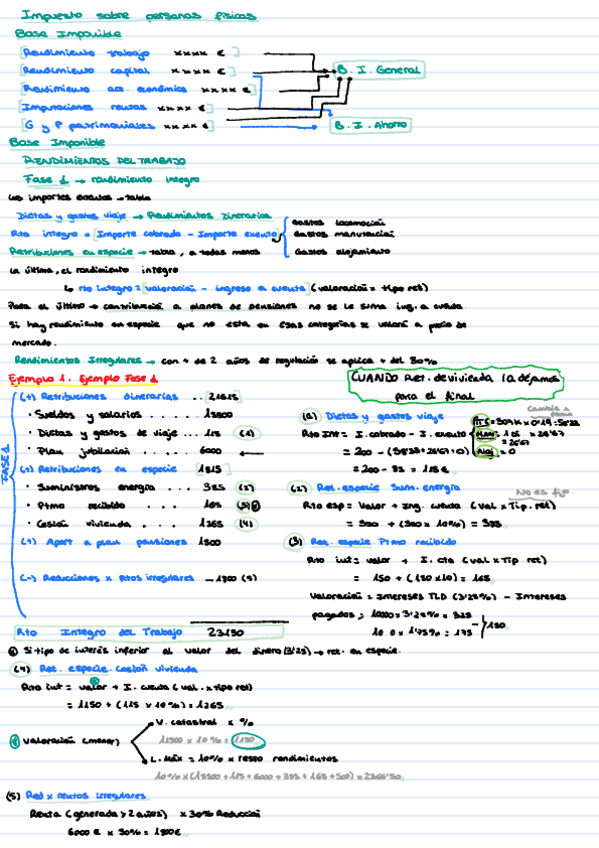 Impuesto sobre personas físicas
Base Imponible
Rendimiento trabajo xxxx €
Rendimiento capital xxxx €
Rendimiento act. económica xxxx €
Imputaciones rentas xxxx €
G y P patrimoniales xxxx €
B. I. General
B. I. Ahorro
Base Imponible
RENDIMIENTOS DEL TRABAJO
Fase 1 → rendimiento integro
Los importes exentos → tabla
Dietas y gastos viaje → Rendimientos Dinerarios
Rto integro = [Importe cobrado - Importe exento]
Gastos locomoción
Gastos manutención
Gastos alojamiento
Retribuciones en especie → tabla, a todas menos
la última, el rendimiento integro
↳ rto integro = [valoración - ingreso a cuenta] (valoración x tipo ret)
Para el último → contribución a planes de pensiones no se le suma ing. a cuenta
Si hay rendimiento en especie que no esta en esas categorías se valora a precio de
mercado.
Rendimientos Irregulares → con + de 2 años de regulación se aplica + del 30%
Ejemplo 1. Ejemplo Fase 1
CUANDO Ret. de vivienda la dejamos
para el final
FASE 1
(+) Retribuciones dinerarias ... 21615
· Sueldos y salarios .... 15500
· Dietas y gastos de viaje ... 115 (1)
· Plan jubilación .... 6000
(+) Retribuciones en especie 1815
· Suministros energía ... 385 (2)
· Ptmo recibido . . 165 (3)
· Cesión vivienda . . . 1265 (4)
(+) Aport a plan pensiones 1500
(-) Reducciones x Rtos irregulares -1800 (5)
Rto Integro del Trabajo 23130
(1) Dietas y gastos viaje
Rto Int = I. cobrado - I. exento
= 200 - (58'33 + 26'67 + 0)
= 200 - 85 = 115 €
= 0
(2) Ret. especie Sum. energía
No es fijo
Rto esp = Valor + Ing. cuenta (Val x Tip. ret)
= 350 + (350 x 10%) = 385
(3) Ret. especie Ptmo recibido
Rto int = valor + I. cta (val x Tip ret)
= 150 + (150 x 10) = 165
Valoración = Intereses TLD (3'25%) - Intereses
pagados; 10000 x 3'25% = 325
1'75% = 175
150
Si tipo de interés inferior al valor del dinero (3'25) → ret. en especie.
(4) Ret. especie. Cesión vivienda
Rto int = valor + I. cuenta (val. x tipo ret)
= 1150 + (115 x 10%) = 1265
Valoración (menor)
V. catastral x %
11500 x 10% = 1150
L. Máx = 10% x resto rendimientos
(5) Red x rentos irregulares
Renta (generada > 2 años) x 30% Reducción
6000 € x 30% = 1800 €